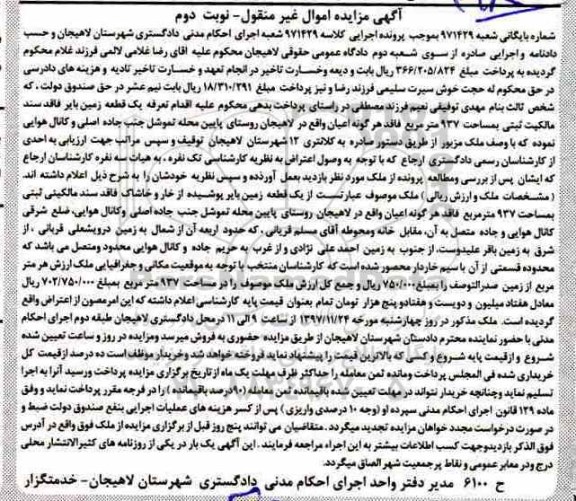 آگهی مزایده اموال غیر منقول- نوبت دوم
شماره بایگانی شعبه ۹۷۱۴۲۹ بموجب پرونده اجرایی کلاسه ۹۷۱۴۲۹ شعبه اجرای احکام مدنی دادگستری شهرستان لاهیجان و حسب
دادنامه و اجرایی صادره از سوی شعبه دوم دادگاه عمومی حقوقی لاهیجان محکوم علیه آقای رضا غلامی لالمی فرزند غلام محکوم
گردیده به پرداخت مبلغ ۳۶۶/۲۰۵/۸۲۴ ریال بابت و دیعه وخسارت تاخیر در انجام تعهد و خسارت تاخیر تادیه و هزینه های دادرسی
در حق محکوم له حجت خوش سیرت سلیمی فرزند رضا و نیز پرداخت مبلغ ۱۸/۳۱۰/۲۹۱ ریال بابت نیم عشر در حق صندوق دولت ، که
شخص ثالث بنام مهدی توفیقی نعیم فرزند مصطفی در راستای پرداخت بدهی محکوم علیه اقدام تعرفه یک قطعه زمین بایر فاقد سند
مالکیت ثبتی بمساحت ۹۳۷ متر مربع فاقد هر گونه اعیان واقع در لاهیجان روستای پایین محله تموشل جنب جاده اصلی و کانال هوایی
نموده که با وصف ملک مزبور از طریق دستور صادره به کلانتری ۱۲ شهرستان لاهیجان توقیف و سپس مراتب جهت ارزیابی به احدی
از کارشناسان رسمی دادگستری ارجاع که با توجه به وصول اعتراض به نظریه کارشناسی تک نفره ، به هیات سه نفره کارشناسان ارجاع
که ایشان پس از بررسی ومطالعه پرونده از ملک مورد نظر بازدید بعمل آورده و سپس نظریه خودشان را به شرح ذیل اعلام داشته اند.
( مشخصات ملک و ارزش ریالی ) ملک موصوف عبارتست از یک قطعه زمین بایر پوشیده از خار و خاشاک فاقد سند مالکیتی ثبتی
بمساحت ۹۳۷ مترمربع فاقد هر گونه اعیان واقع در لاهیجان روستای پایین محله تموشل جنب جاده اصلی وکانال هوایی، ضلع شرقی
کانال هوایی و جاده متصل به آن، مقابل خانه ومحوطه آقای مسلم قربانی ، که حدود اربعه آن از شمال به زمین درویشعلی قربانی ، از
شرق به زمین باقر علیدوست، از جنوب به زمین احمد علی نژادی و از غرب به حریم جاده و کانال هوایی محدود ومتصل می باشد که
محدوده قسمتی از آن با سیم خاردار محصور شده است که کارشناسان منتخب با توجه به موقعیت مکانی و جغرافیایی ملک ارزش هر متر
مربع از زمین صدرالتوصف را بمبلغ ۷۵۰/۰۰۰ ریال و جمع کل ارزش ملک موصوف را در مساحت ۹۳۷ متر مربع بمبلغ ۷۰۲/۷۵۰/۰۰۰ ریال
معادل هفتاد میلیون و دویست و هفتاد و پنج هزار تومان تمام بعنوان قیمت پایه کارشناسی اعلام داشته که این امر مصون از اعتراض واقع
گردیده است. ملک مذکور در روز چهارشنبه مورخه ۱۳۹۷/۱۱/۲۴ از ساعت ۹ الی ۱۱ در محل دادگستری لاهیجان طبقه دوم اجرای احکام
مدنی با حضور نماینده محترم دادستان شهرستان لاهیجان از طریق مزایده حضوری به فروش میرسد ومزایده در روز و ساعت تعیین شده
شروع و از قیمت پایه شروع و کسی که بالاترین قیمت را پیشنهاد نماید فروخته خواهد شد وخریدار موظف است ده درصد از قیمت کل
خریداری شده فی المجلس پرداخت ومانده ثمن معامله را حداکثر ظرف مهلت یک ماه از تاریخ برگزاری مزایده پرداخت ورسید آنرا به اجرا
تسلیم نماید وچنانچه خریدار نتواند در مهلت تعیین شده باقیمانده ثمن معامله (۹۰ درصد باقیمانده ) را در فرجه مقرر پرداخت نماید و وفق
ماده ۱۲۹ قانون اجرای احکام مدنی سپرده او (وجه ۱۰ درصدی واریزی ) پس از کسر هزینه های عملیات اجرایی بنفع صندوق دولت ضبط و
در صورت درخواست مجدد خواهان مزایده تجدید میگردد . متقاضیان می توانند پنج روز قبل از برگزاری مزایده از ملک فوق واقع در آدرس
فوق الذکر بازدید وجهت کسب اطلاعات بیشتر به این اجراء مراجعه فرمایند . این آگهی یک بار در یکی از روزنامه های کثیرالانتشار محلی
درج ودر معابر عمومی و نقاط پرجمعیت شهر الصاق میگردد.
ح ۶۱۰۰ مدیر دفتر واحد اجرای احکام مدنی دادگستری شهرستان لاهیجان- خدمتگزار